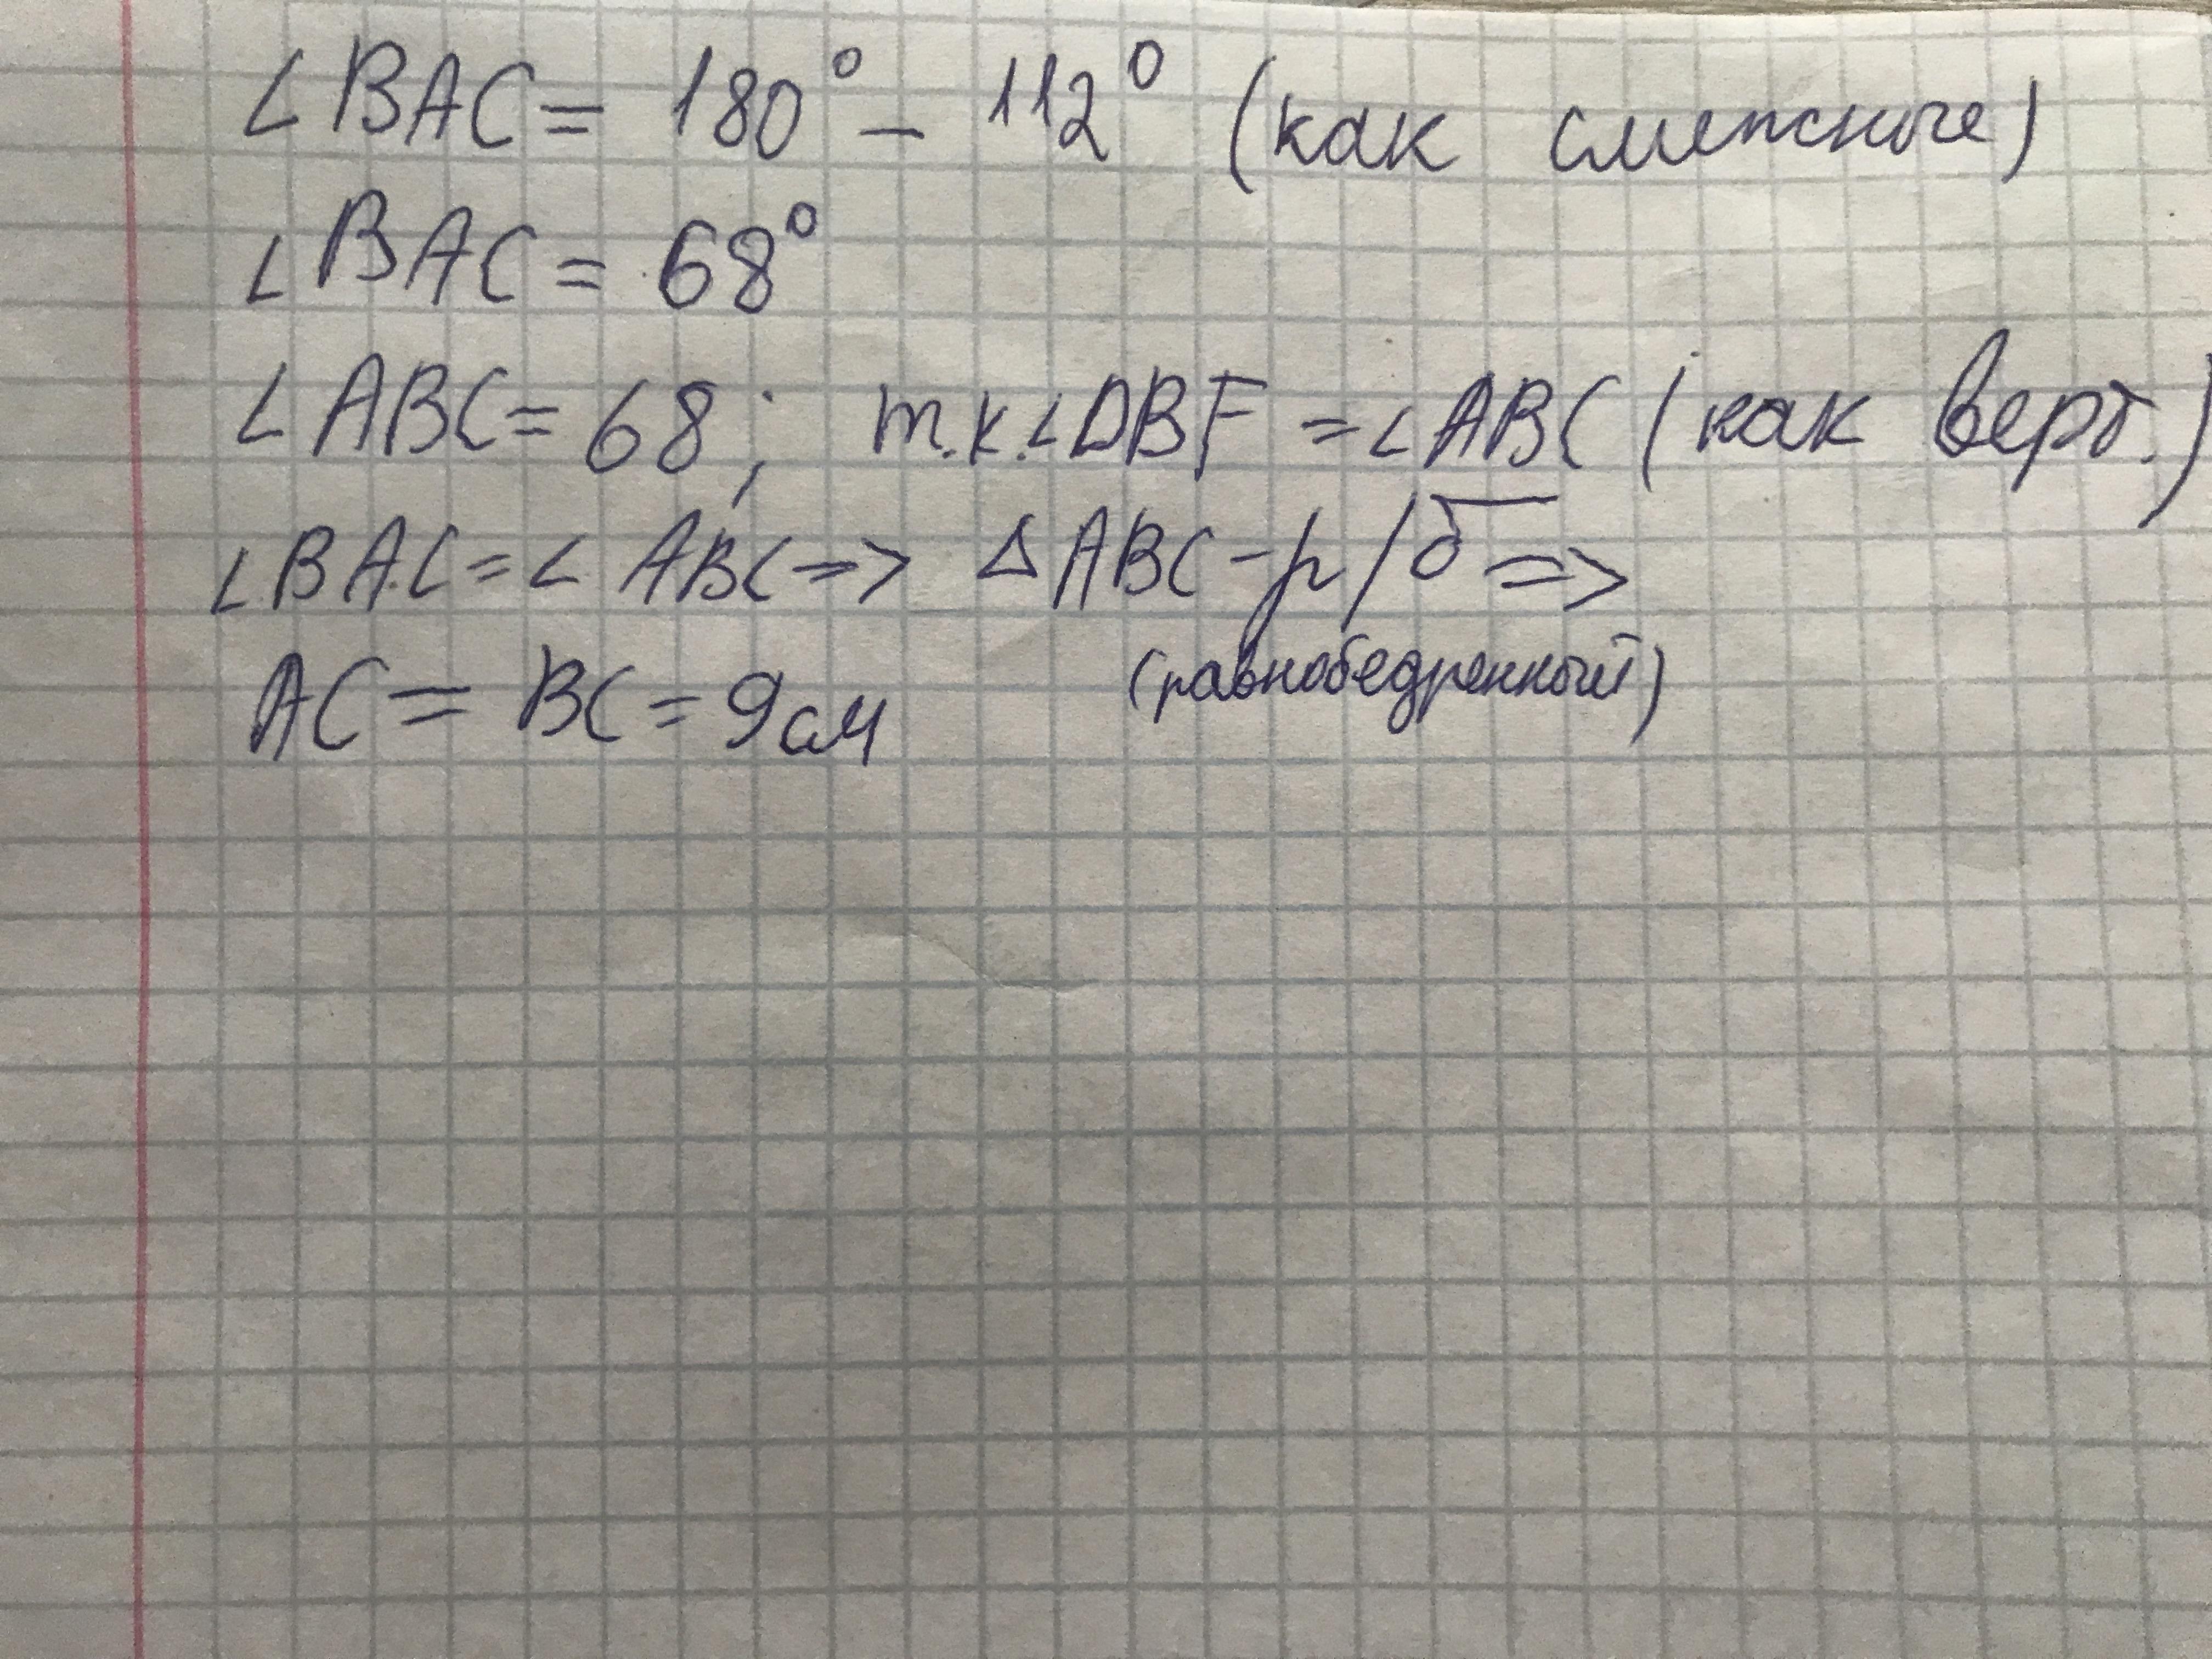 ∠BAC = 180° - 112° (как смежные)
∠BAC = 68°
∠ABC = 68; т.к. ∠DBF = ∠ABC (как верт.)
∠BAC = ∠ABC => ΔABC - р/б =>
(равнобедренный)
AC = BC = 9см